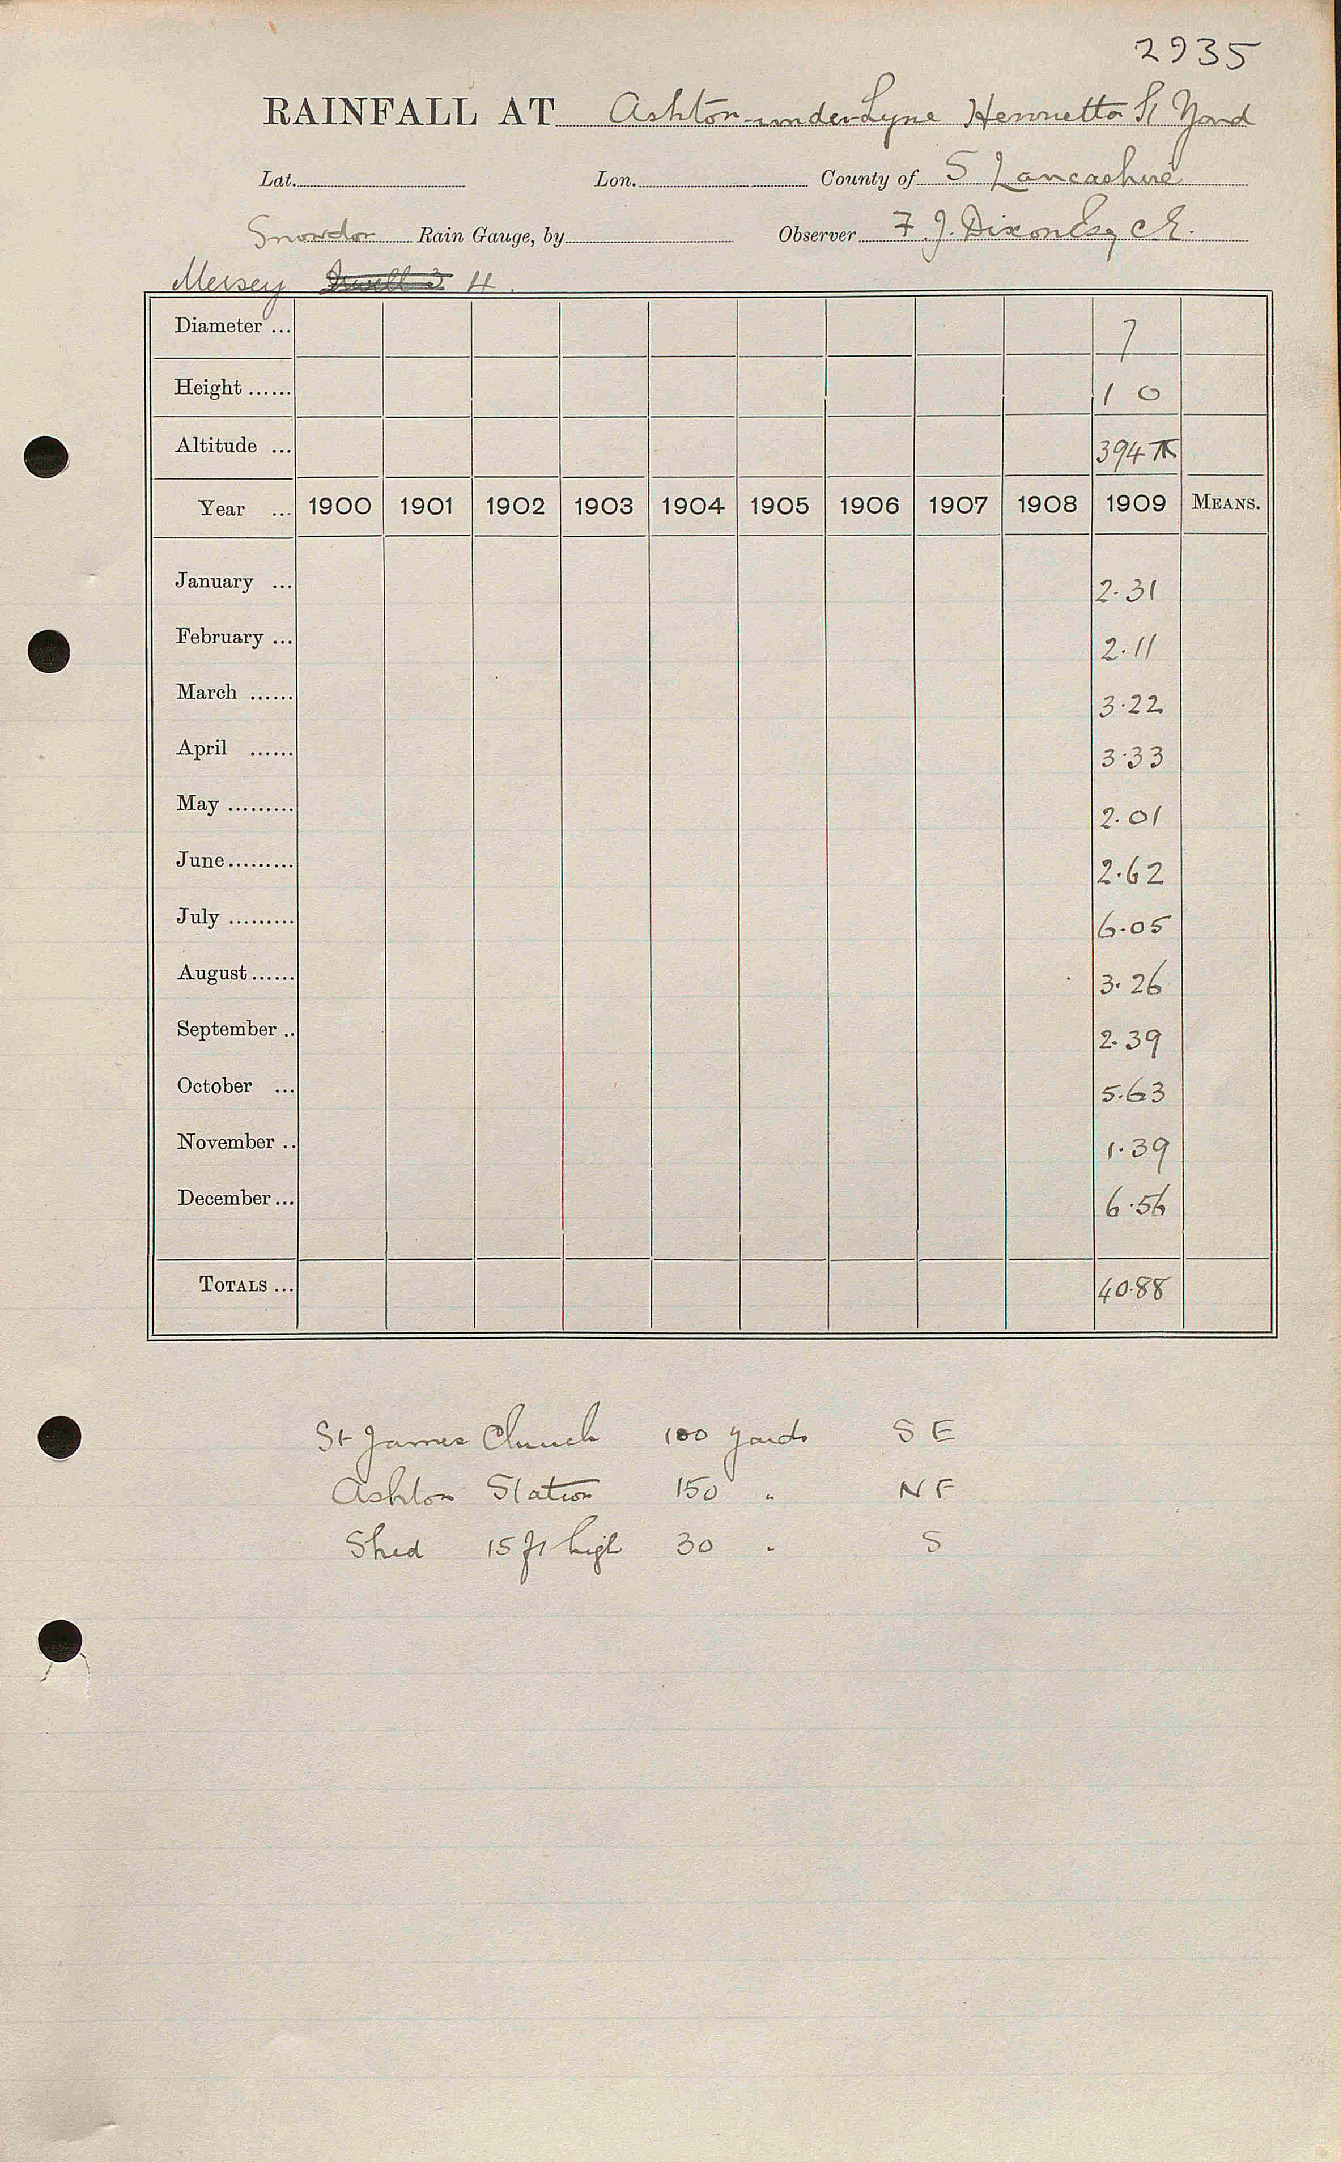 2935
RAINFALL AT Ashton-under-Lyne Henrietta St Yard
Lat. Lon. County of S Lancashire
Snowdon Rain Gauge, by Observer F. J. Dixon Esq C.E.
Mersey Irwell 3 4.
Diameter ... 7
Height ...... 1 0
Altitude ... 394
Year ... 1900 1901 1902 1903 1904 1905 1906 1907 1908 1909 MEANS.
January ... 2.31
February ... 2.11
March ...... 3.22
April ...... 3.33
May ......... 2.01
June ......... 2.62
July ......... 6.05
August ...... 3.26
September .. 2.39
October ... 5.63
November .. 1.39
December ... 6.56
TOTALS ... 40.88
St James Church 100 yards S E
Ashton Station 150 " N E
Shed 15 ft high 30 " S